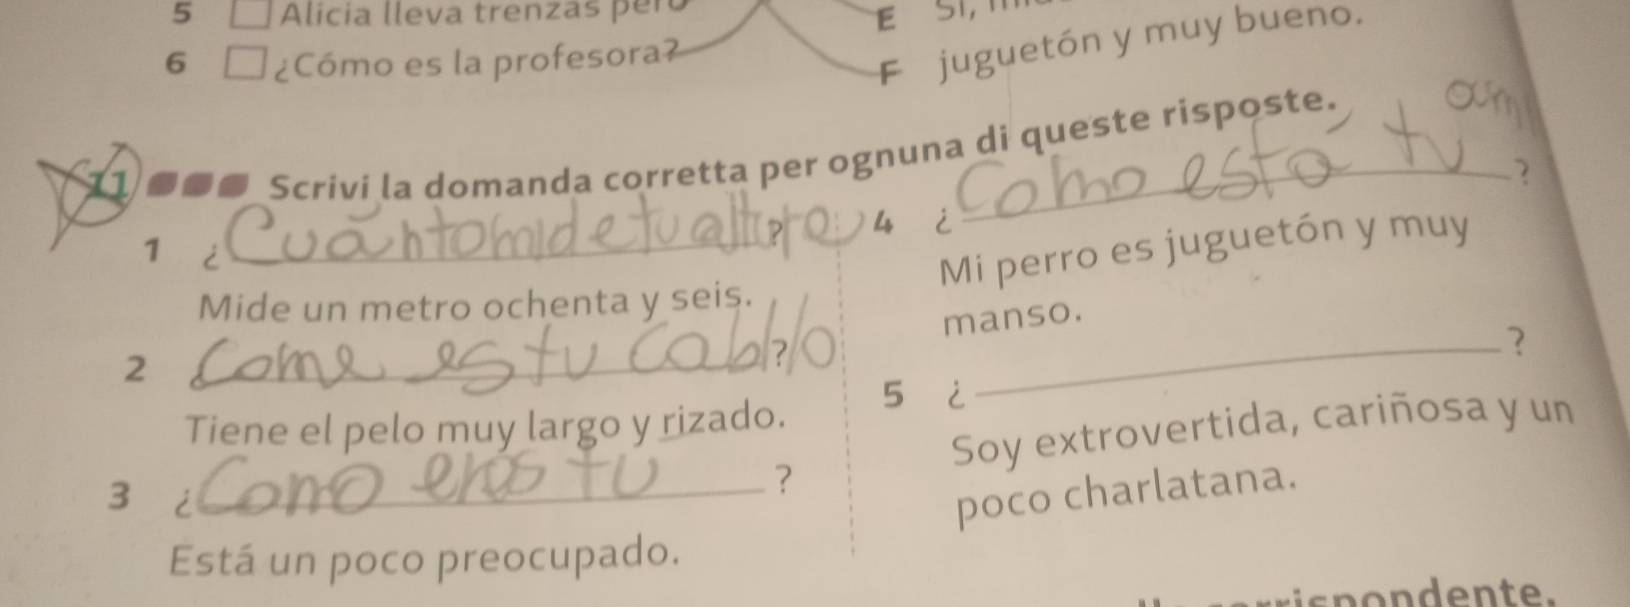 5 Alicia lleva trenzas pero
6 ¿Cómo es la profesora?
E Sí,
F juguetón y muy bueno.
11 Scrivi la domanda corretta per ognuna di queste risposte.
1 ¿Cuánto mide tu altura?
Mide un metro ochenta y seis.
2 Come es tu cabblo?
Tiene el pelo muy largo y rizado.
3 ¿Como eres tu?
Está un poco preocupado.
4 ¿Como está tu ?
Mi perro es juguetón y muy
manso.
5 ¿ ?
Soy extrovertida, cariñosa y un
poco charlatana.